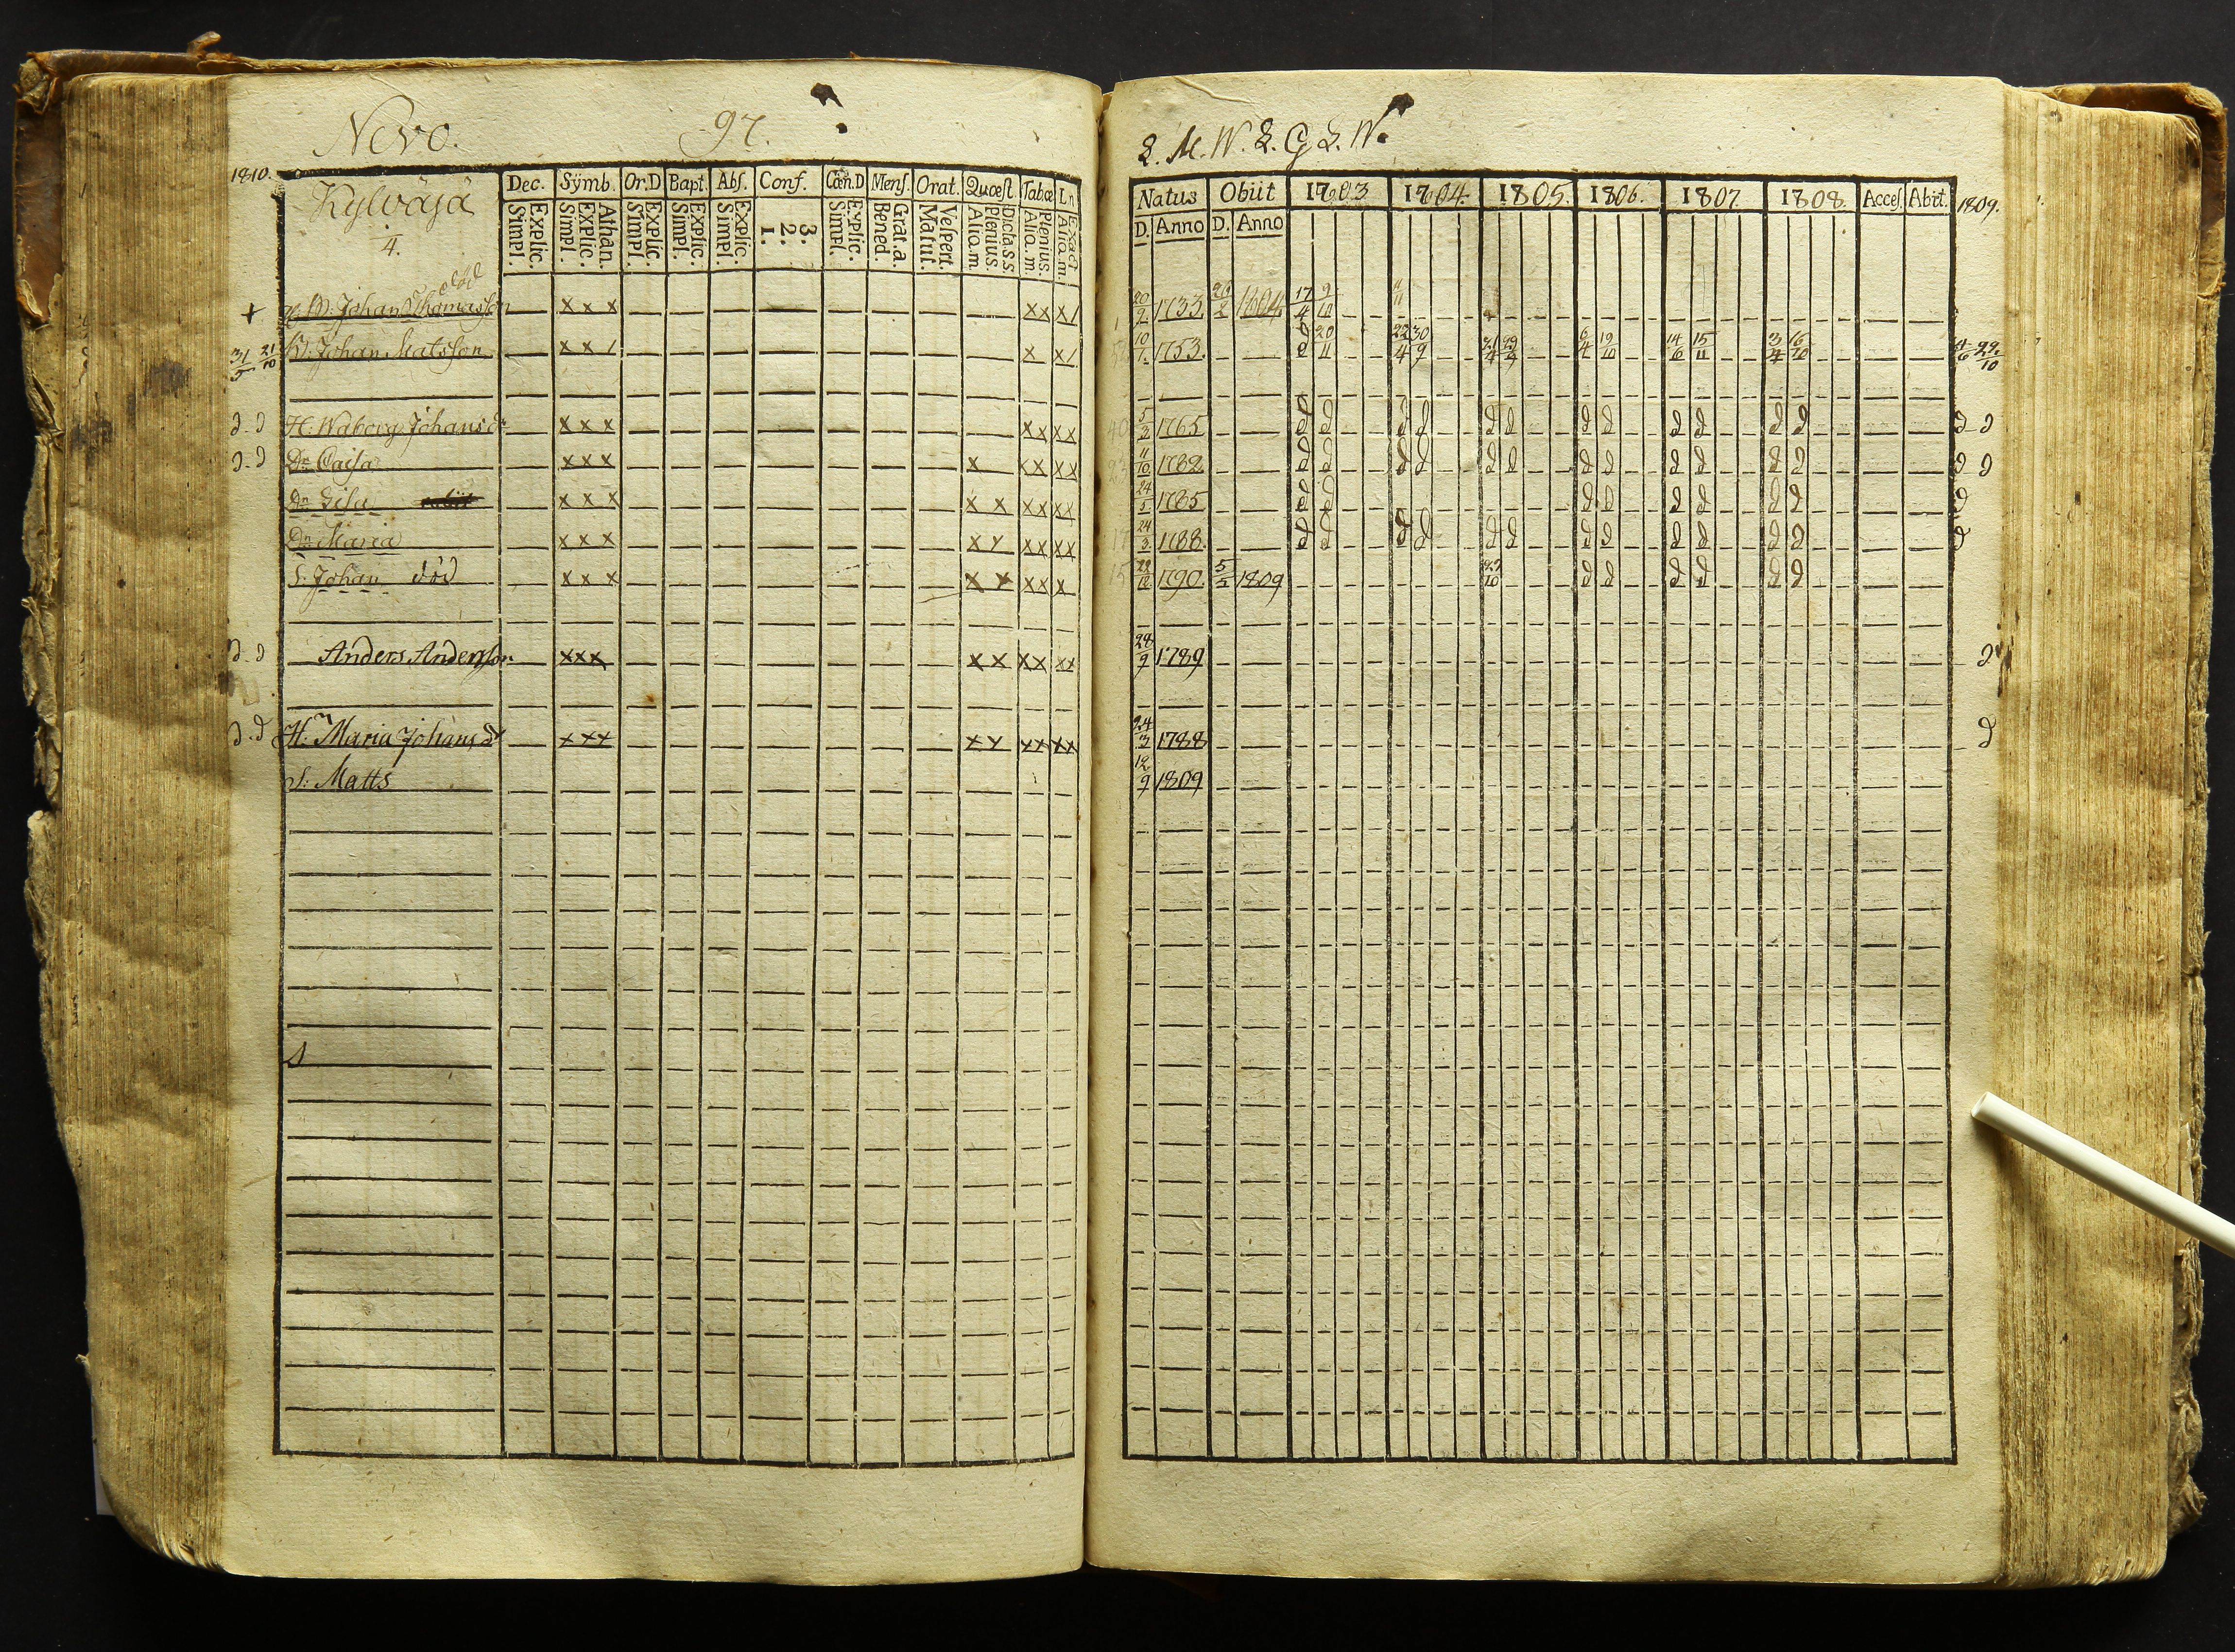 Nervo. 97.
L. M. W. L. G L. W.
1810. Kylväjä 4.
Dec. Symb. Or.D Bapt. Abſ. Conf. Cœn.D Menſ. Orat. Quæſt Tabæ Ln
Simpl. Explic. Simpl. Explic. Athan. Simpl. Explic. Simpl. Explic. Simpl. Explic. 1. 2. 3. Simpl. Explic. Bened. Grat.a. Matut. Veſpert. Alio.m. Plenius. Dicta.s.s. Alio.m. Plenius. Alio.m. Exact
Natus Obiit 1803 1804. 1805. 1806. 1807. 1808. Acceſ. Abit. 1809.
D. Anno D. Anno
död
+ Johan Thomasson x x x x x x / 20/2 1733. 2 1804. 17/4 9/10 11/11
31/5 21/10 Johan Matsson x x / x x / 10/1. 1753. 20/11 22/4 30/9 21/4 29/9 6/4 19/10 14/6 15/11 3/4 16/10 4/6 22/10
d. d H: Waborg Johansdr x x x x x x x 5/2 1765 d d d d d d d d d d d d d d
d. d Dr Caisa x x x x x x x x 11/10 1782 d d d d d d d d d d d d d d
Dr Lisa x x x x x x x x x 24/5 1785 d d d d d d d d d
Dr Maria x x x x x x x x x 24/3 1788. d d d d d d d d d d d d d
S. Johan död x x x x x x x x 1790. 5/2 1809 23/10 d d d d d d
d. d Anders Andersson x x x x x x x x x 28/9 1789 d
d. d H: Maria Johansdr x x x x x x x x x 24/3 1788 d
S: Matts 12/9 1809